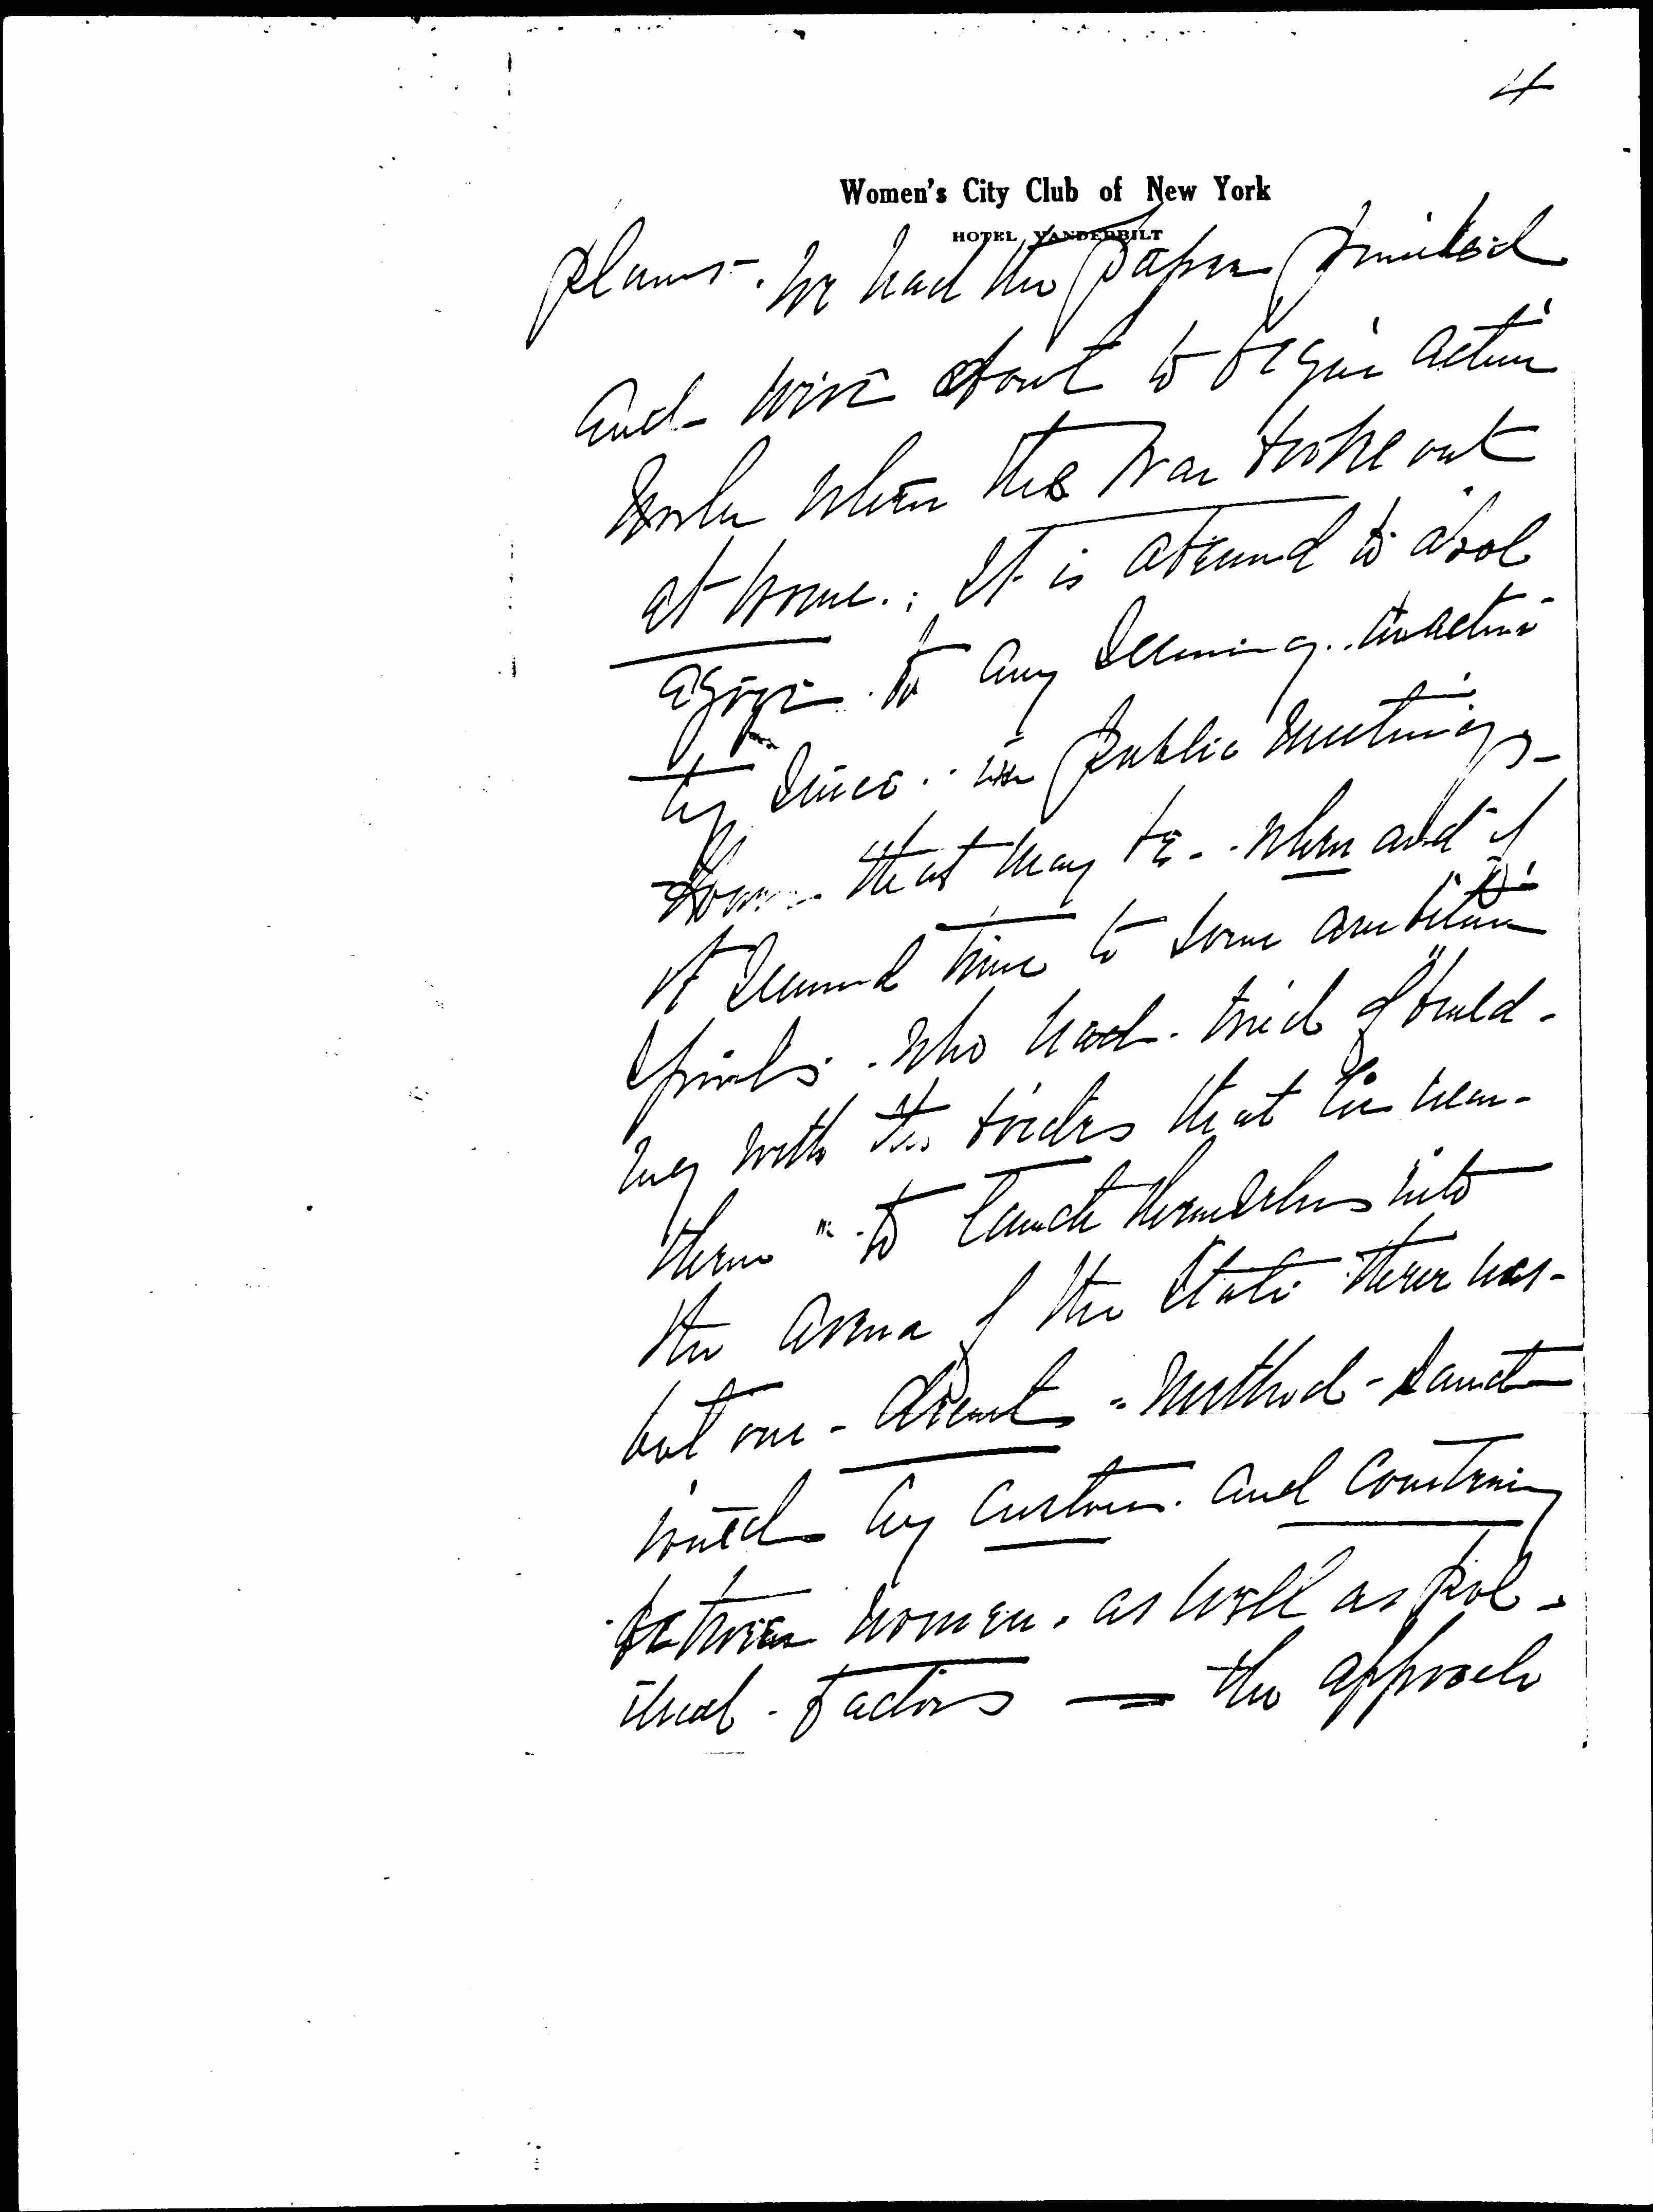 4
Women's City Club of New York
HOTEL VANDERBILT
plans. We had the paper printed
and were about to begin active
work when the war broke out
at home. It is absurd to apol
ogize to any seeming inactivi
ty since in public meetings
that may be. When and if
it seemed time to some ambitious
spirits who had tried of build-
ing with the bricks that lie near
them to launch themselves into
the arena of the State there was
but one - direct - method - sanct
ioned by custom and courtesy
between women. as well as pol-
itical factors — the approach